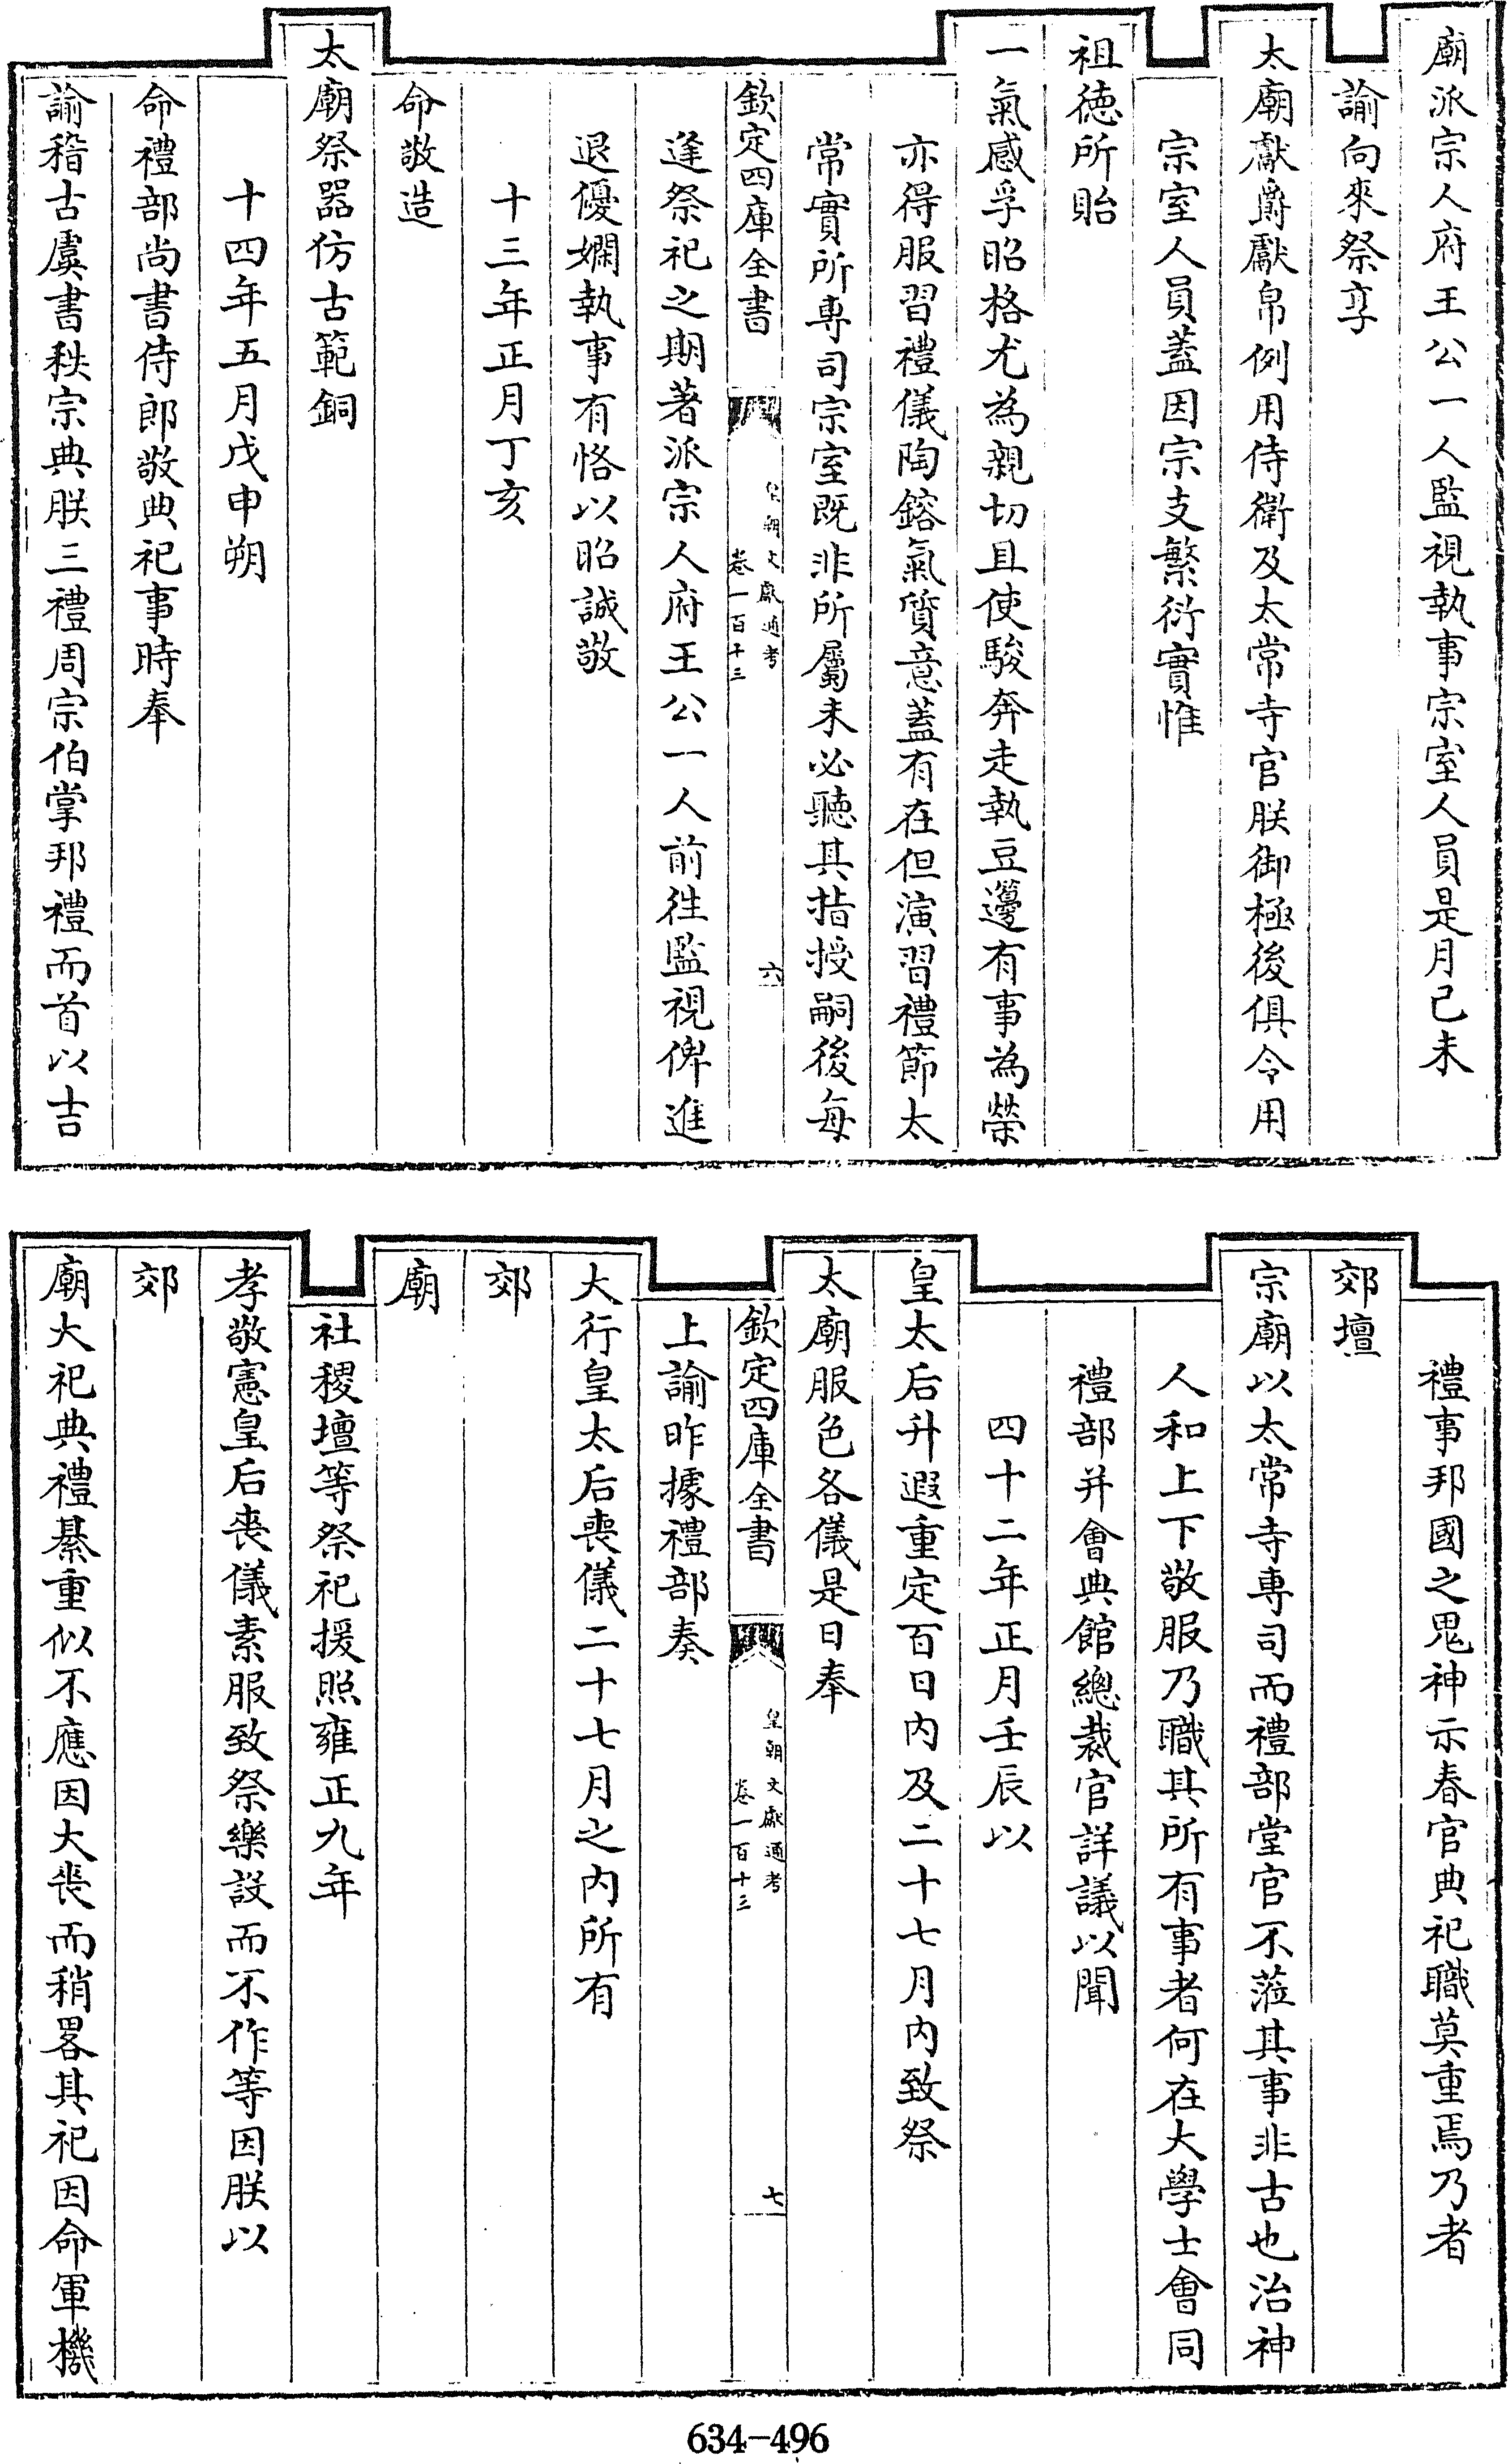 廟派宗人府王公一人監視執事宗室人員是月己未
諭向來祭享
太廟獻爵獻帛例用侍衛及太常寺官朕御極後俱令用
宗室人員蓋因宗支繁衍實惟
祖徳所貽
一氣感孚昭格尤為親切且使駿奔走執豆籩有事為榮
亦得服習禮儀陶鎔氣質意蓋有在但演習禮節太
常實所專司宗室既非所屬未必聽其指授嗣後每
欽定四庫全書
皇朝文獻通考
卷一百十三
六
逢祭祀之期著派宗人府王公一人前往監視俾進
退優嫻執事有恪以昭誠敬
十三年正月丁亥
命敬造
太廟祭器仿古範銅
十四年五月戊申朔
命禮部尚書侍郎敬典祀事時奉
諭稽古虞書秩宗典朕三禮周宗伯掌邦禮而首以吉
禮事邦國之鬼神示春官典祀職莫重焉乃者
郊壇
宗廟以太常寺專司而禮部堂官不蒞其事非古也治神
人和上下敬服乃職其所有事者何在大學士會同
禮部并會典館總裁官詳議以聞
四十二年正月壬辰以
皇太后升遐重定百日内及二十七月内致祭
太廟服色各儀是日奉
欽定四庫全書
皇朝文獻通考
卷一百十三
七
上諭昨據禮部奏
大行皇太后喪儀二十七月之内所有
郊
廟
社稷壇等祭祀援照雍正九年
孝敬憲皇后喪儀素服致祭樂設而不作等因朕以
郊
廟大祀典禮綦重似不應因大喪而稍畧其祀因命軍機
634-496